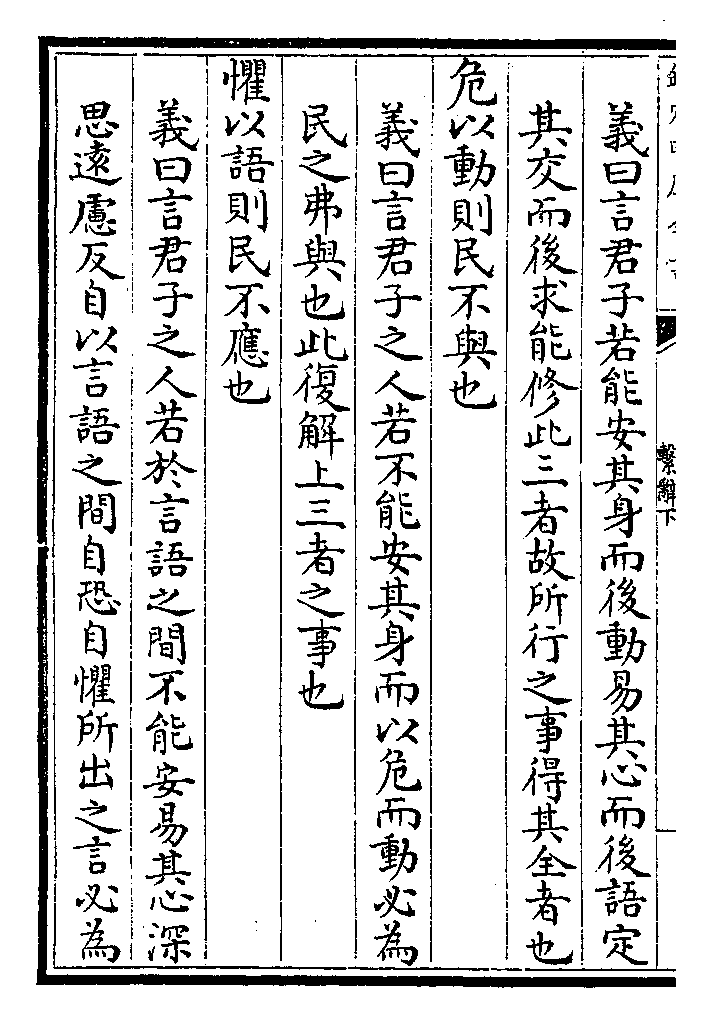 繫辭下
義曰言君子若能安其身而後動易其心而後語定
其交而後求能修此三者故所行之事得其全者也
危以動則民不與也
義曰言君子之人若不能安其身而以危而動必為
民之弗與也此復解上三者之事也
懼以語則民不應也
義曰言君子之人若於言語之間不能安易其心深
思遠慮反自以言語之間自恐自懼所出之言必為